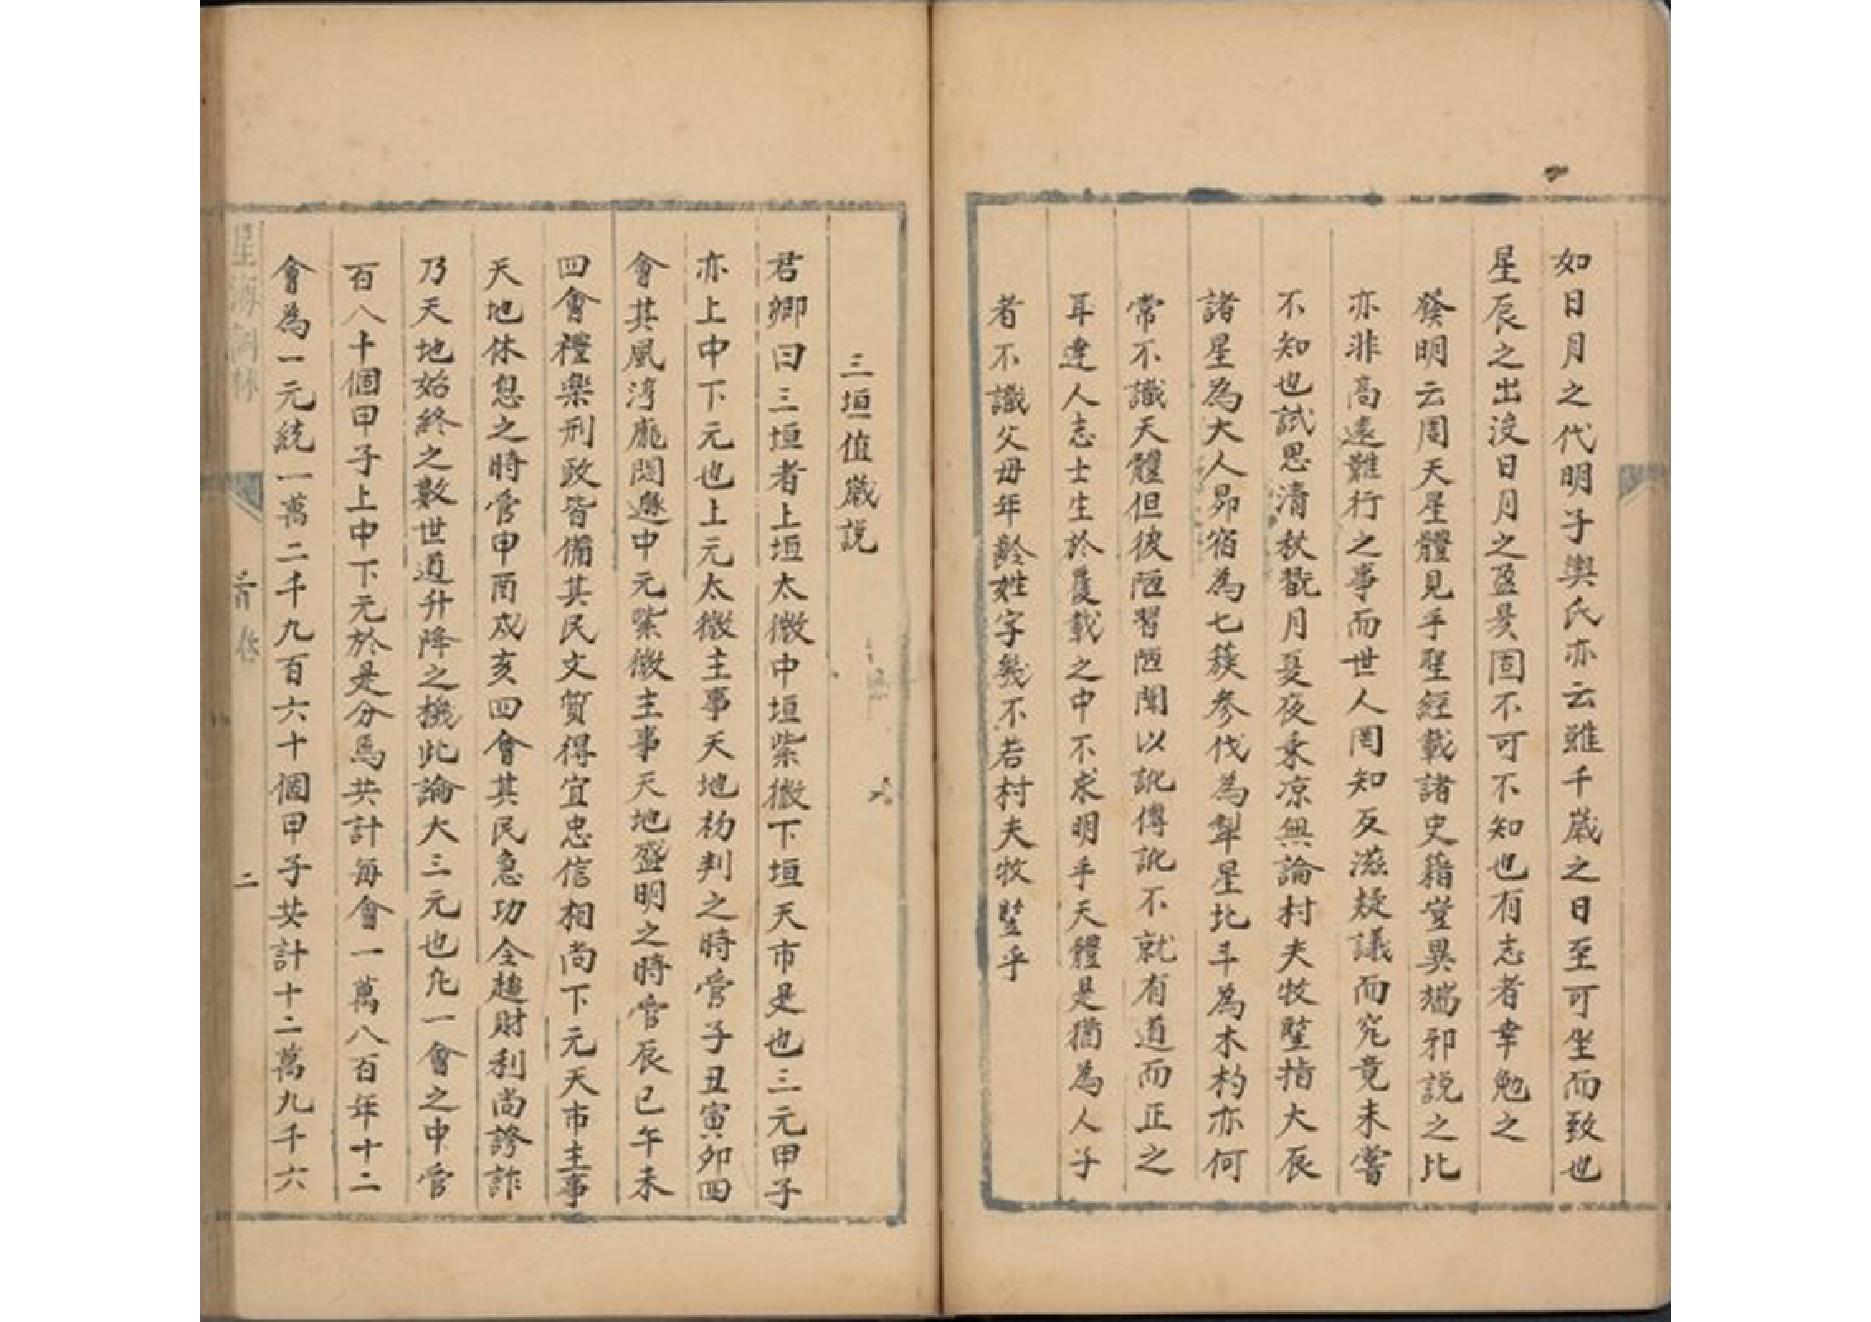 如日月之代明子輿氏亦云雖千歲之日至可坐而致也
星辰之出沒日月之盈昃固不可不知也有志者幸勉之
癸明云周天星體見乎聖經載諸史籍豈異端邪説之比
亦非高遠難行之事而世人罔知反滋疑議而究竟未嘗
不知也試思清秋翫月夏夜乘凉無論村夫牧豎指大辰
諸星為大人昴宿為七蔟參伐為犁星北斗為木杓亦何
常不識天體但彼陋習陋聞以訛傳訛不就有道而正之
耳達人志士生於覆載之中不求明乎天體是猶為人子
者不識父母年齡姓字幾不若村夫牧豎乎
三垣值歲説
君卿曰三垣者上垣太微中垣紫微下垣天市是也三元甲子
亦上中下元也上元太微主事天地初判之時管子丑寅卯四
會其風淳龐悶遯中元紫微主事天地盛明之時管辰巳午未
四會禮樂刑政皆備其民文質得宜忠信相尚下元天市主事
天地休息之時管申酉戍亥四會其民急功全趨財利尚誇詐
乃天地始終之數世道升降之機此論大三元也凢一會之中管
百八十個甲子上中下元於是分焉共計每會一萬八百年十二
會為一元統一萬二千九百六十個甲子共計十二萬九千六
星海詞林
首卷
二